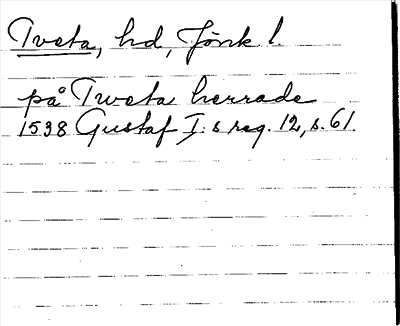 Tveta, hd, Jönk l.
på Tweta herrade
1538 Gustaf I:s reg. 12, s. 61.